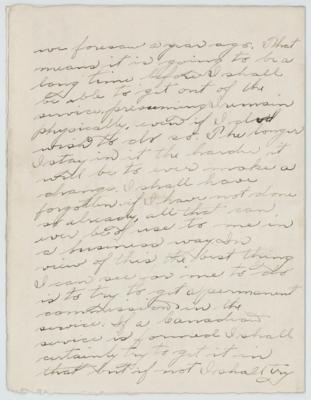 we foresaw a year ago. That
means it is going to be a
long time before I shall
be able to get out of the
service, presuming I remain
physically, even if I do
wish to do so. The longer
I stay in it the harder it
will be to ever make a
change. I shall have
forgotten if I have not done
so already, all that can
ever be of use to me in
a business way. In
view of this the best thing
I can see for me to do
is to try to get a permanent
commission in the
service. If a Canadian
service is formed I shall
certainly try to get it in
that but if not I shall try